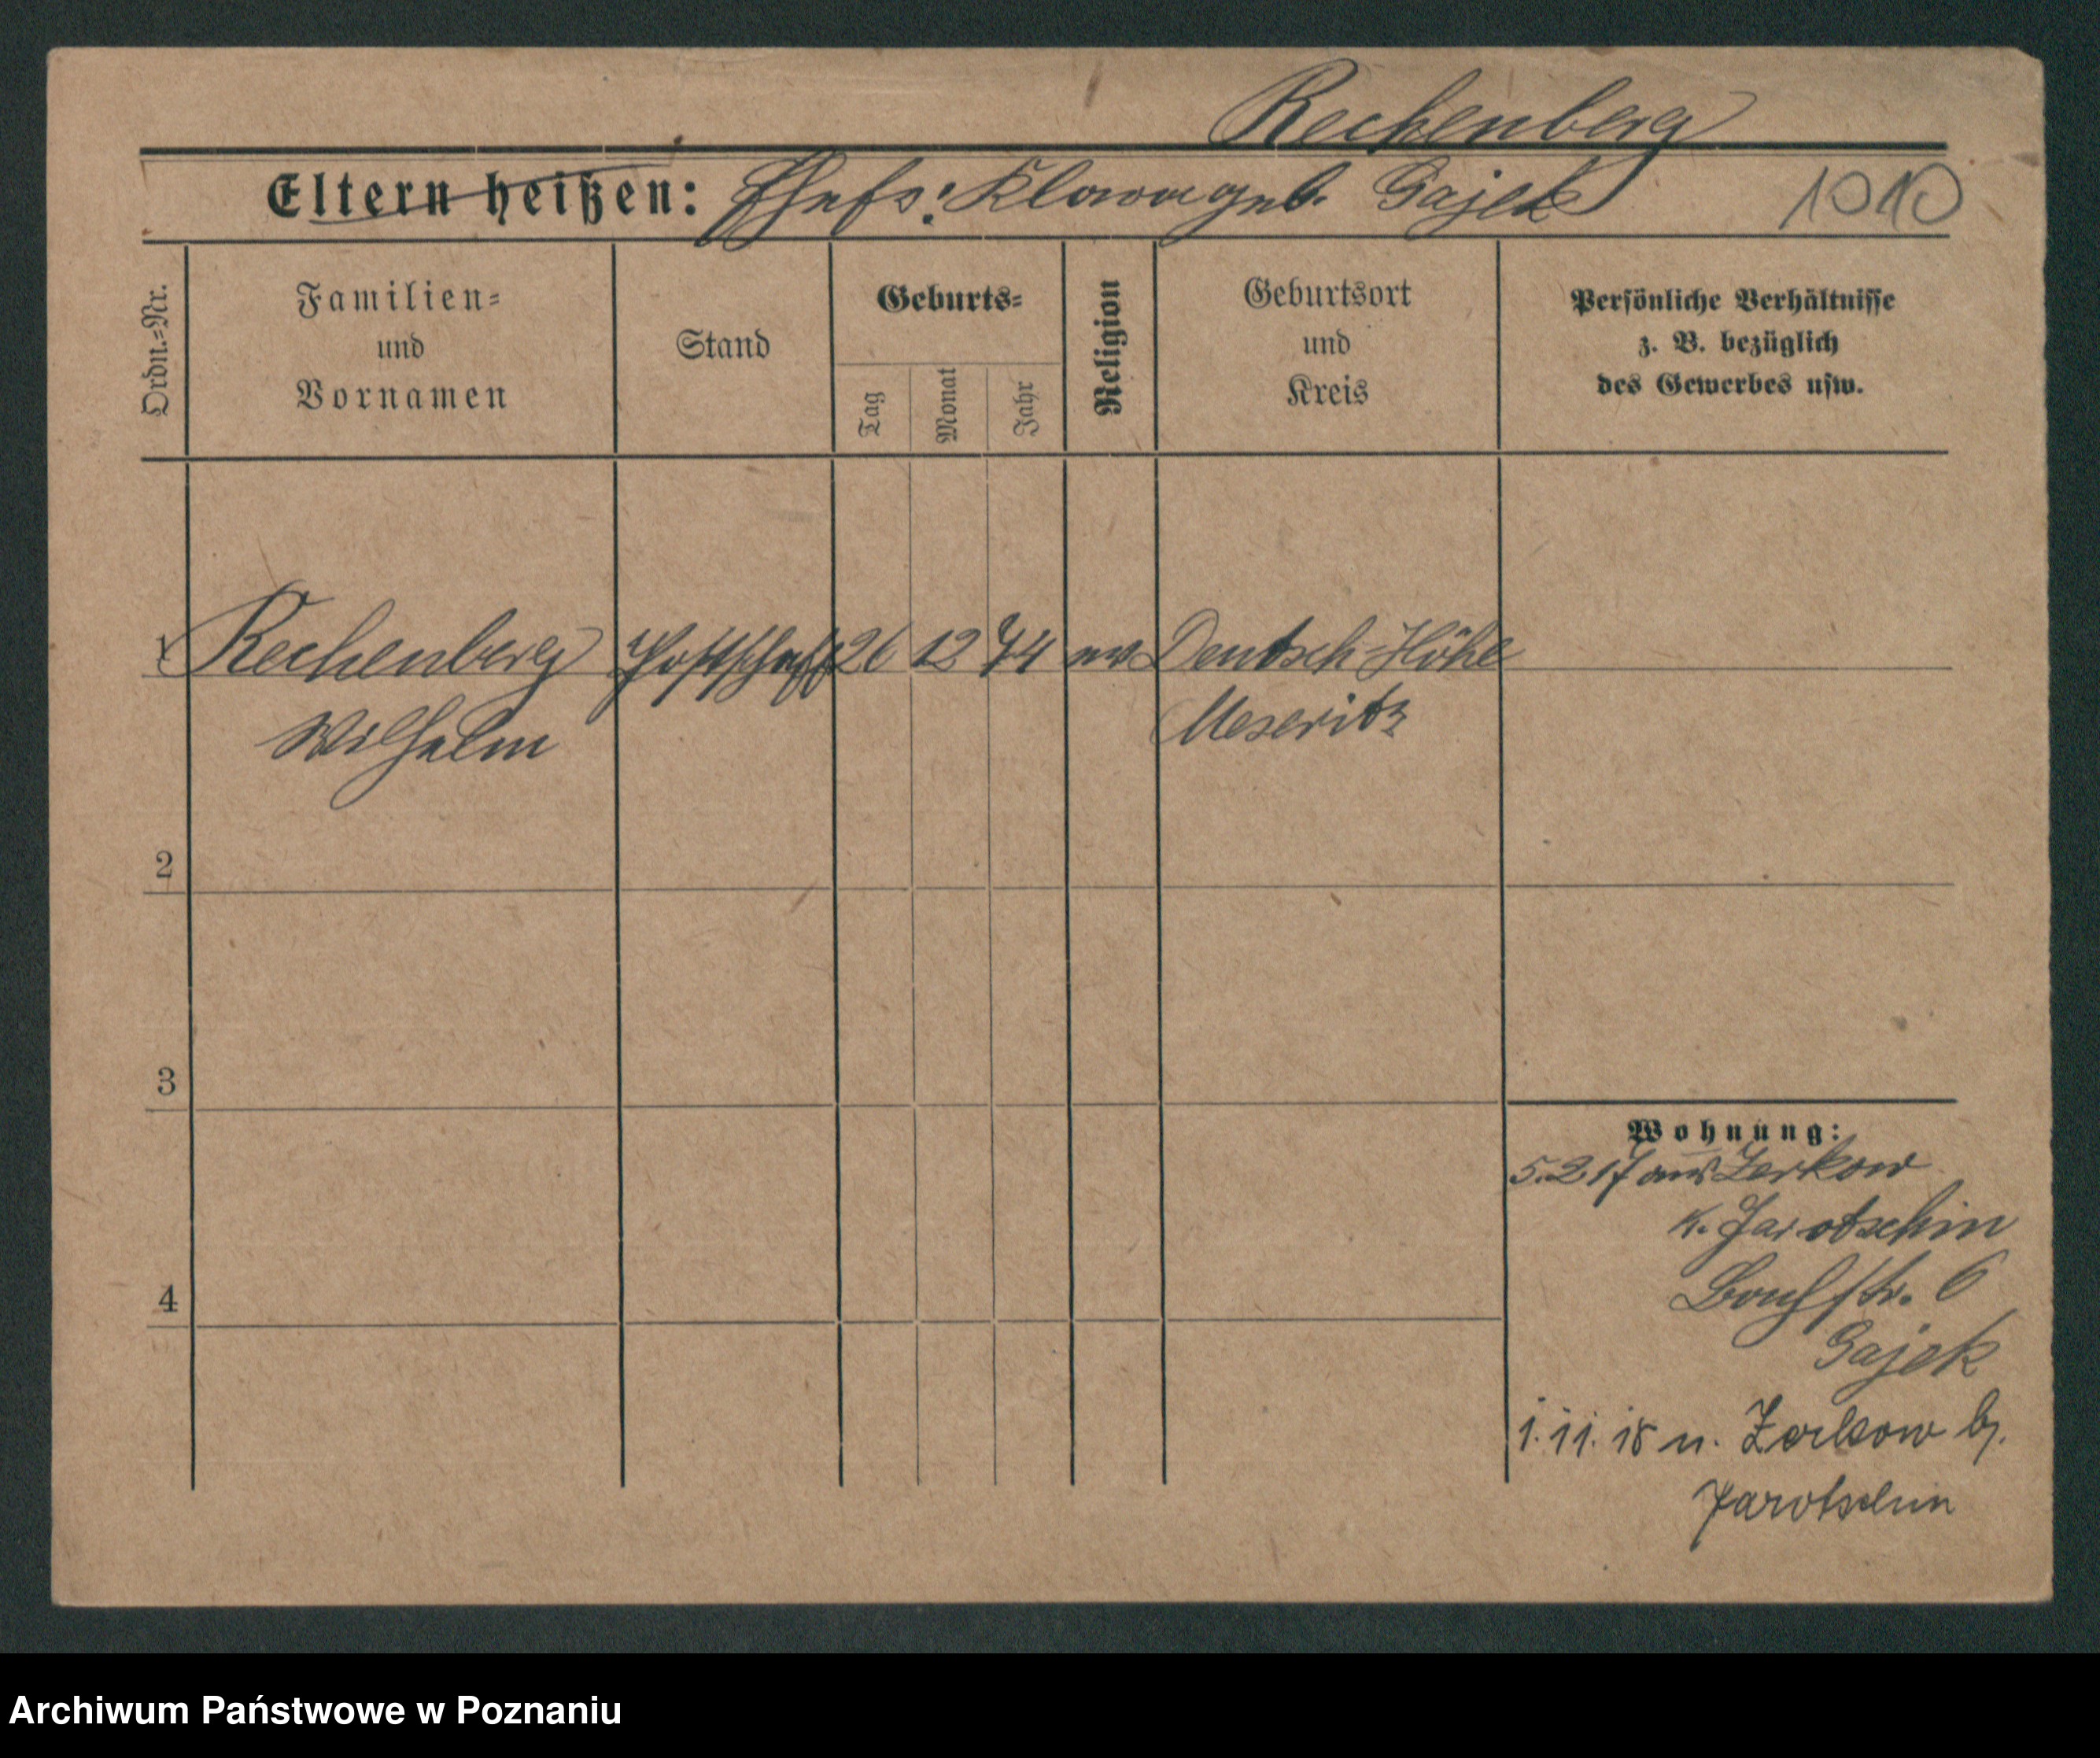 Rechenberg
Eltern heißen: Ehefr: Klara geb. Gajek 1010
Ordn.-Nr.
Familien-
und
Vornamen
Stand
Geburts-
Tag
Monat
Jahr
Religion
Geburtsort
und
Kreis
Persönliche Verhältnisse
z. B. bezüglich
des Gewerbes usw.
1 Rechenberg Postschaff 26 12 74 ev Deutsch-Höhe
Wilhelm Meseritz
2
3
4
Wohnung:
5.2 17 aus Zerkow
K. Jarotschin
str. 6
Gajek
1.11.18 n. Zerkow bz.
Jarotschin
Archiwum Państwowe w Poznaniu